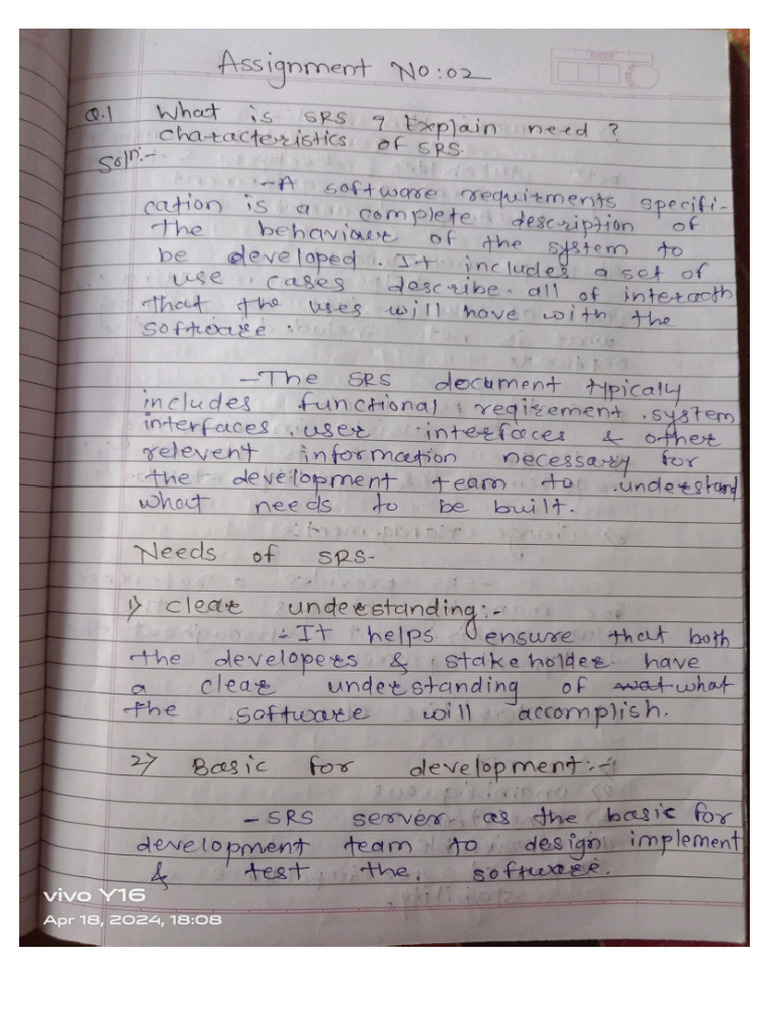 DATE
Assignment No:02
Q.1 What is SRS ? Explain need ?
characteristics of SRS.
Soln:-
-A software requirments specifi-
cation is a complete description of
the behaviour of the system to
be developed. It includes a set of
use cases describe all of interactn
that the uses will have with the
software.
-The SRS document typicaly
includes functional reqirement, system
interfaces, user interfaces & other
relevent information necessary for
the development team to understand
what needs to be built.
Needs of SRS-
1) clear understanding:-
- It helps ensure that both
the developers & stakeholder have
a clear understanding of what
the software will accomplish.
2) Basic for development:-
- SRS server as the basic for
development team to design implement
& test the software.
vivo Y16
Apr 18, 2024, 18:08